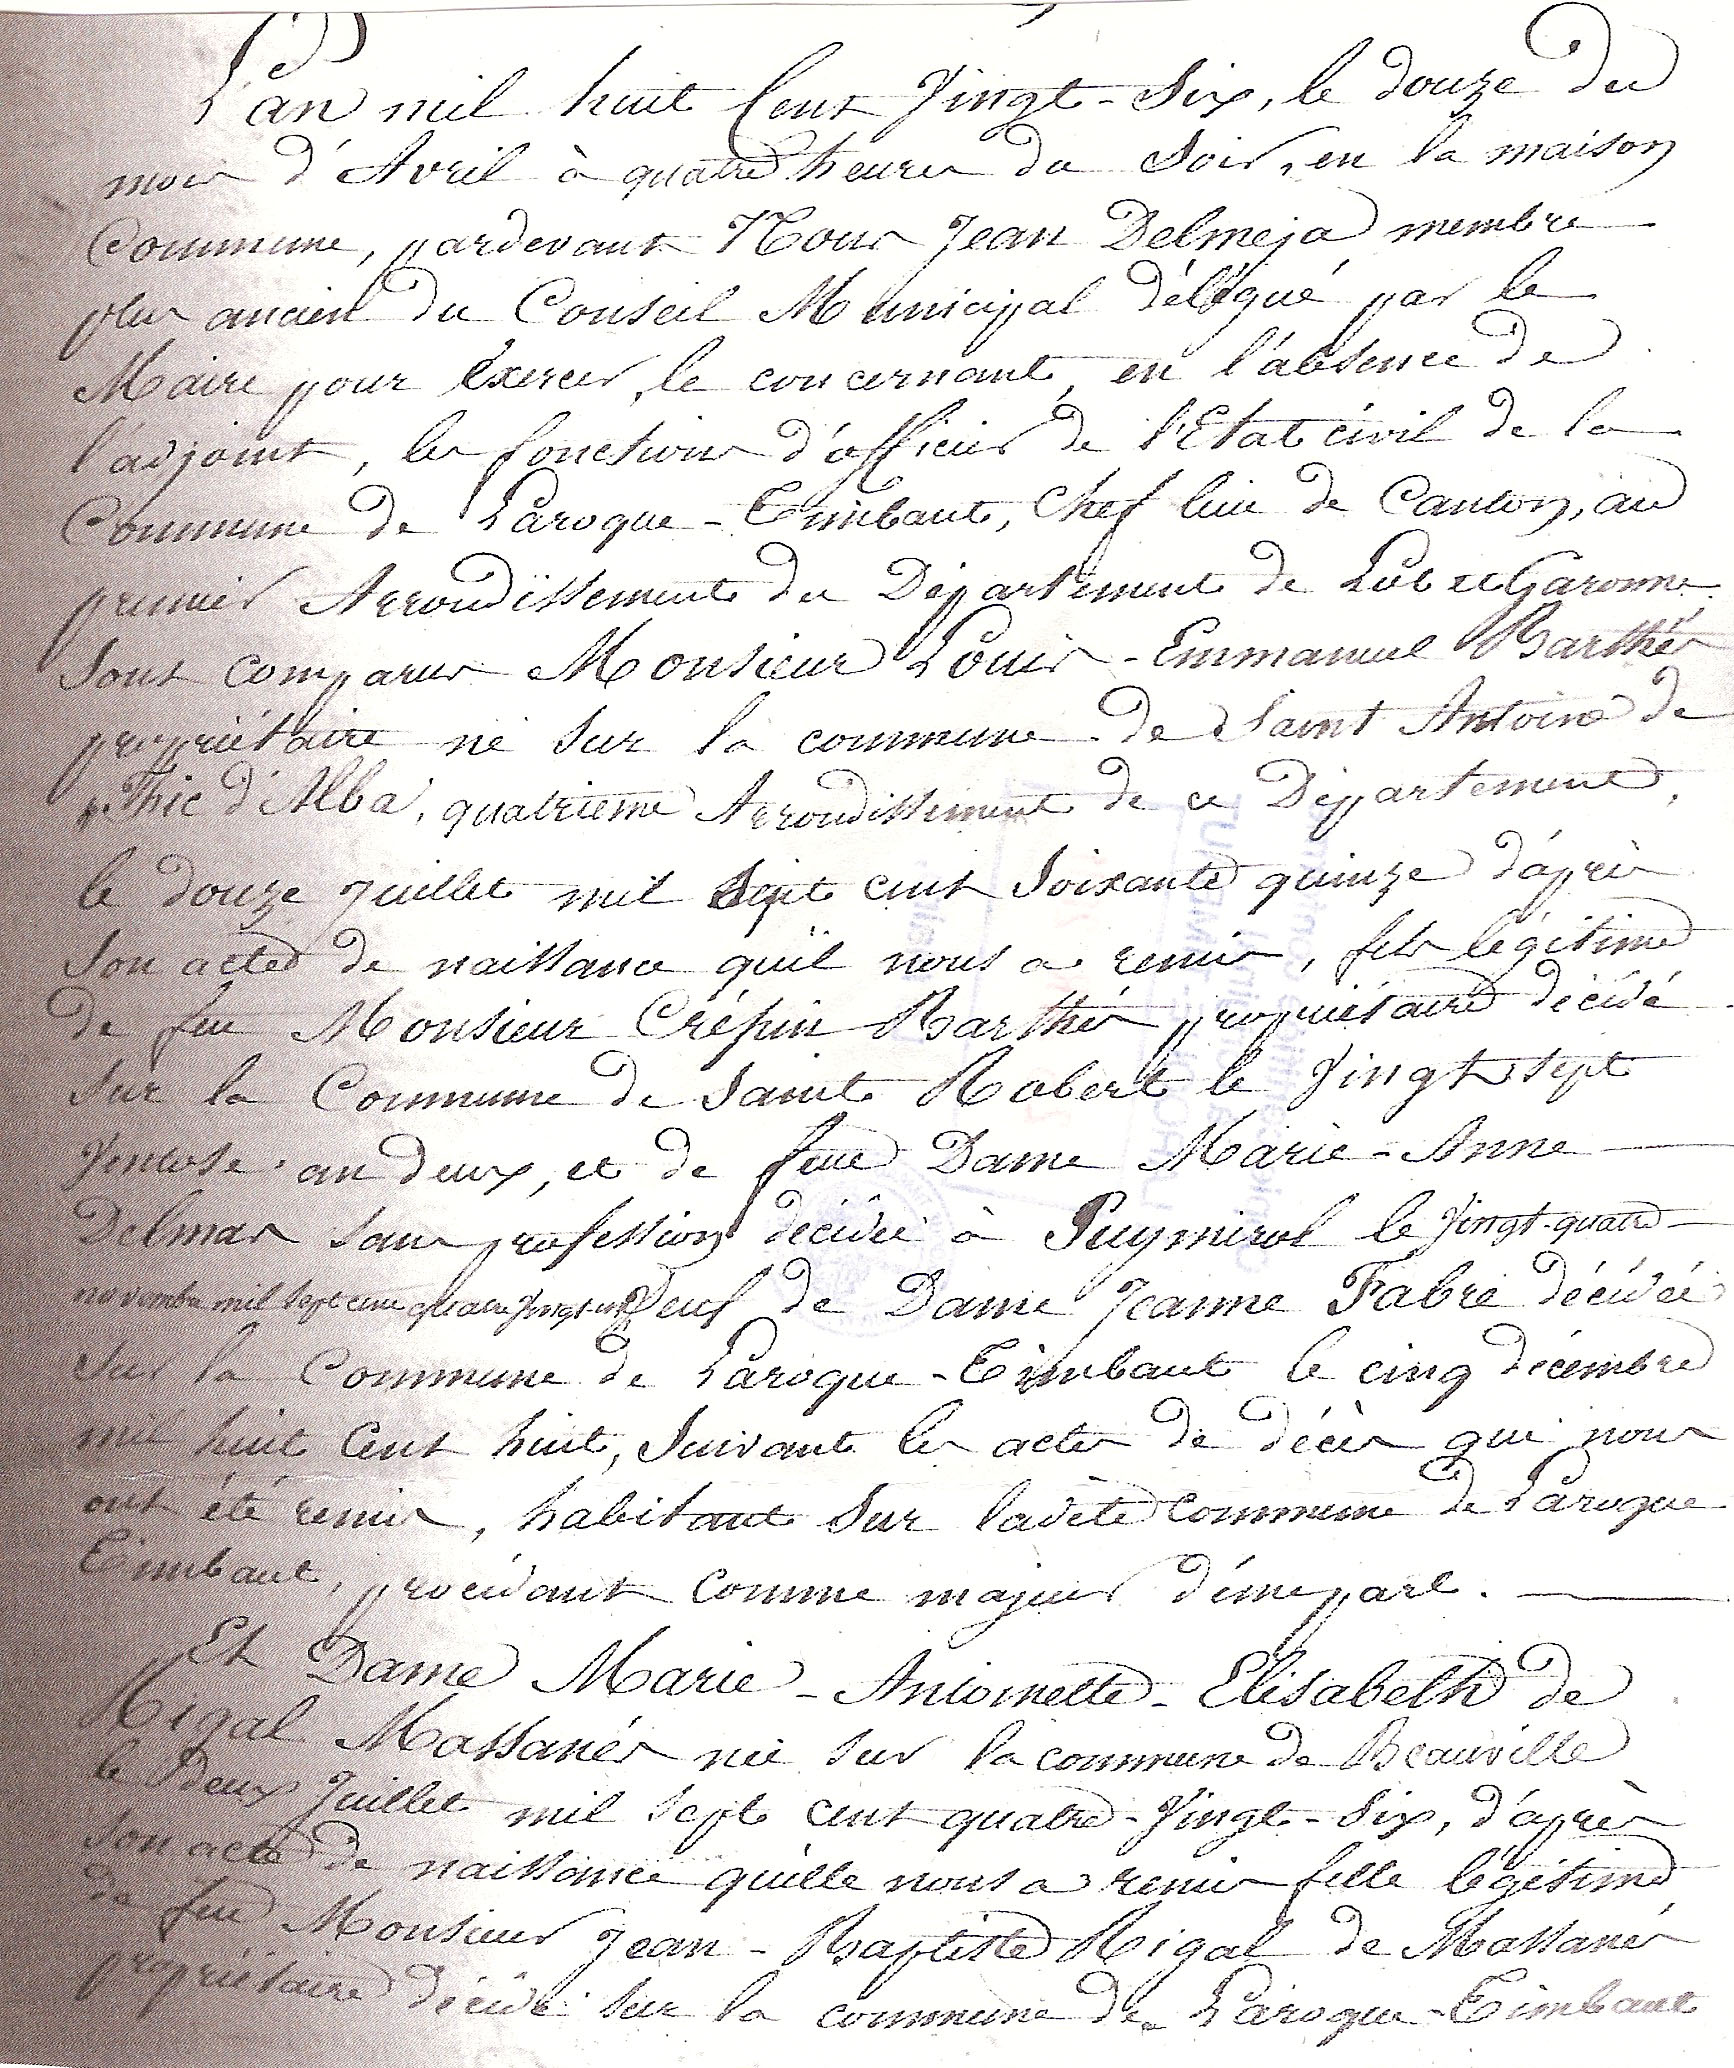 L'an mil huit Cent Vingt-Six, le douze du
mois d'Avril à quatre heures du Soir, en la maison
Commune, pardevant Nous Jean Delmeja membre
plus ancien du Conseil Municipal délégué par le
Maire pour Exercer, le concernant, en l'absence de
l'adjoint, les fonctions d'officier de l'Etat civil de la
Commune de Laroque-Timbaut, Chef lieu de Canton, au
premier Arrondissement du Département de Lot et Garonne
Sont comparus Monsieur Louis-Emmanuel Barthés
propriétaire né Sur la commune de Saint Antoine de
Fic d'Alba, quatrieme Arrondissement de ce Département,
le douze Juillet mil Sept cent Soixante quinze d'après
Son acte de naissance qu'il nous a remis, fils légitime
de feu Monsieur Crépin Barthés propriétaire décédé
Sur la Commune de Saint Robert le Vingt Sept
Ventose an deux, et de feue Dame Marie-Anne
Delmas Sans profession décédée à Puymirol le Vingt-quatre
novembre mil Sept cent quatre Vingt un, Veuf de Dame Jeanne Fabre décédée
Sur la Commune de Laroque-Timbaut le cinq décembre
mil huit Cent huit, Suivant les actes de décès qui nous
ont été remis, habitant Sur ladite commune de Laroque
Timbaut, procédant comme majeur d'une part.
Et Dame Marie-Antoinette-Elisabeth de
Rigal Massanés née Sur la commune de Beauville
le Deux Juillet mil Sept cent quatre-Vingt-Six, d'après
Son acte de naissance qu'elle nous a remis fille légitime
de feu Monsieur Jean-Baptiste Rigal de Massanés
propriétaire décédé Sur la commune de Laroque-Timbaut